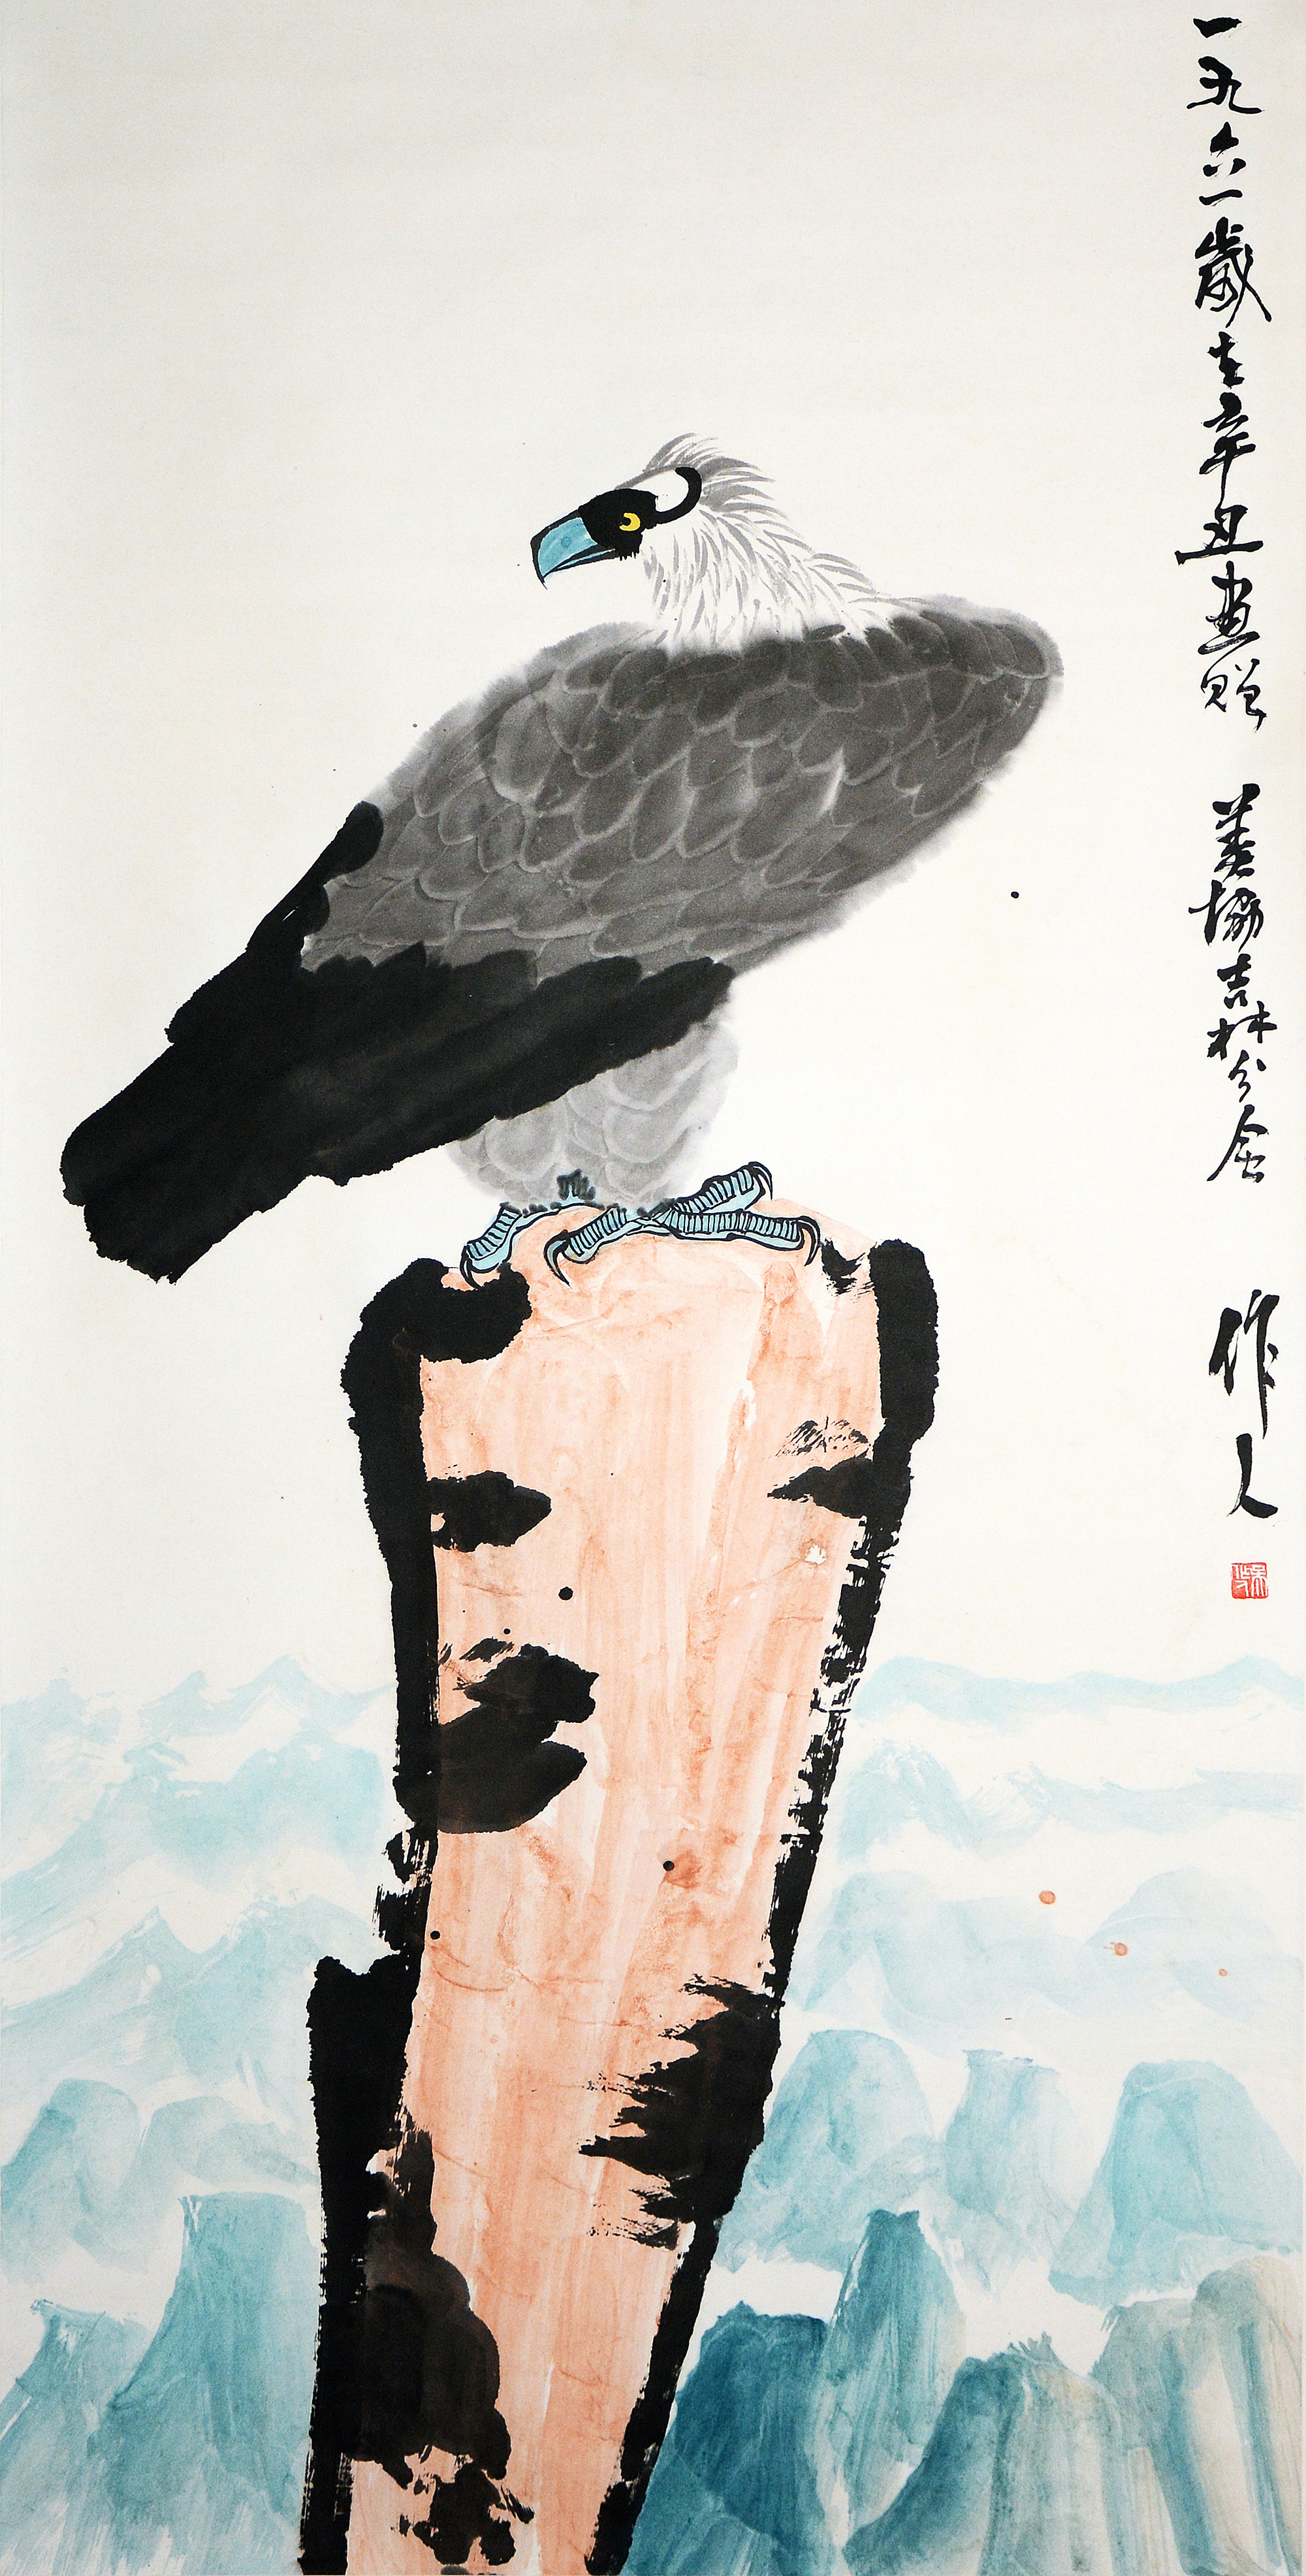 一九六一歲在辛丑畫贈 美協吉林分會 作人